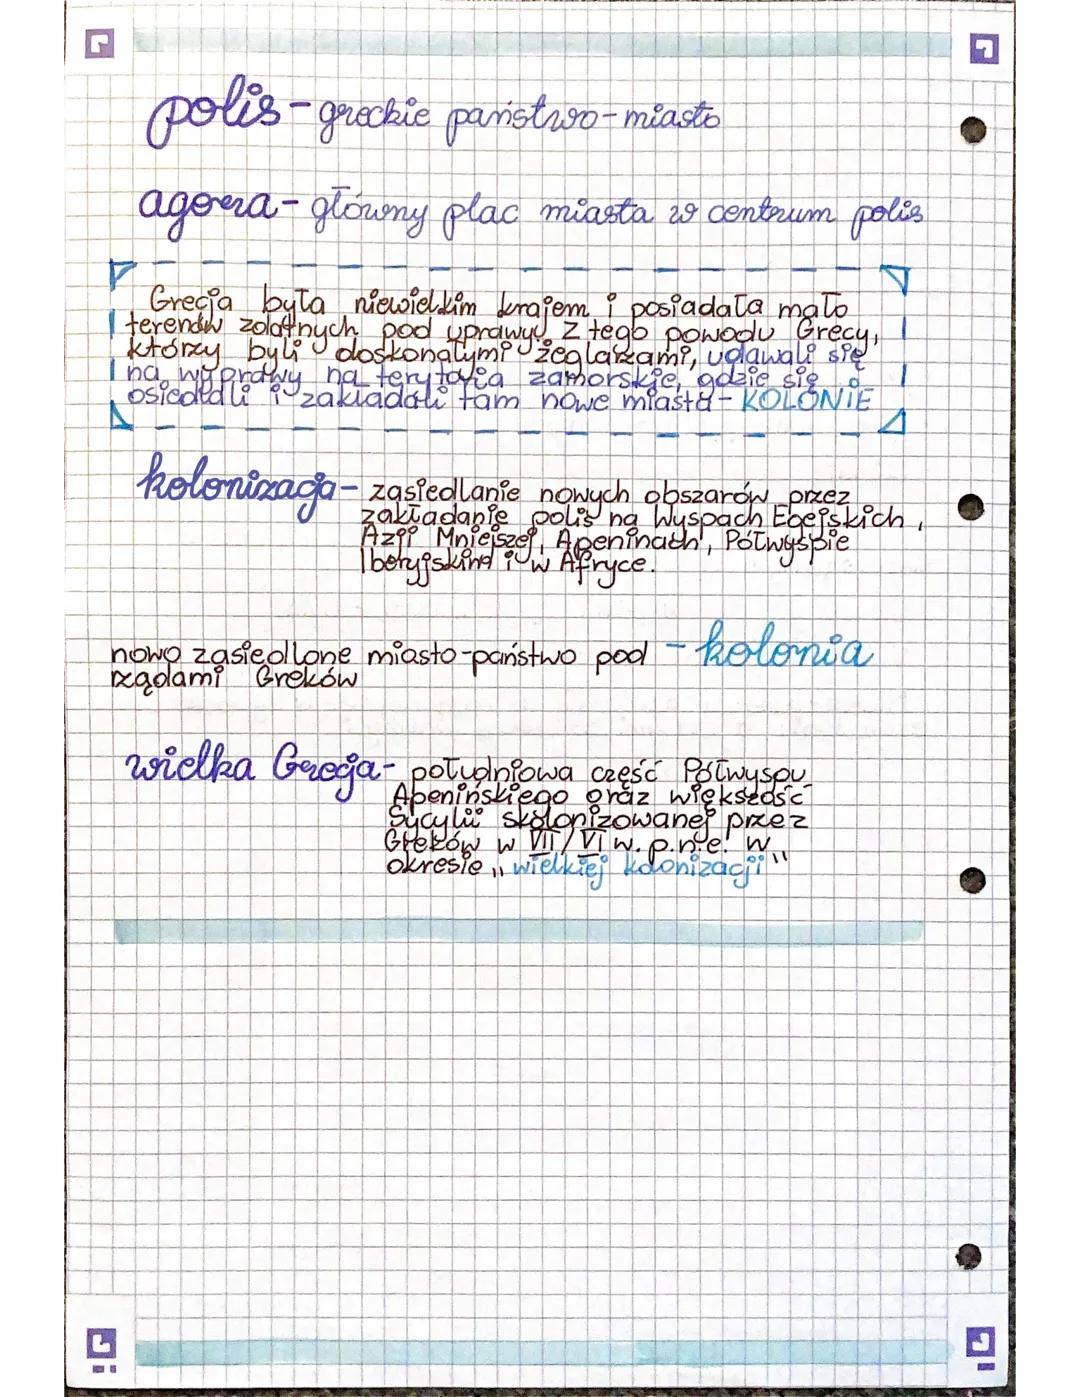 polis - greckie państwo-miasto
agora - główny plac miasta w centrum polis
Grecja była niewielkim krajem i posiadała mało
terenów zdatnych pod uprawy. Z tego powodu Grecy,
którzy byli doskonałymi żeglarzami, udawali się
na wyprawy na terytoria zamorskie, gdzie się
osiedlali i zakładali tam nowe miasta - KOLONIE
kolonizacja - zasiedlanie nowych obszarów przez
zakładanie polis na Wyspach Egejskich,
Azji Mniejszej, Apeninach, Półwyspie
Iberyjskim i w Afryce.
nowo zasiedlone miasto-państwo pod - kolonia
rządami Greków
wielka Grecja - południowa część Półwyspu
Apenińskiego oraz większość
Sycylii skolonizowanej przez
Greków w VII/VI w. p.n.e. w
okresie „wielkiej kolonizacji"